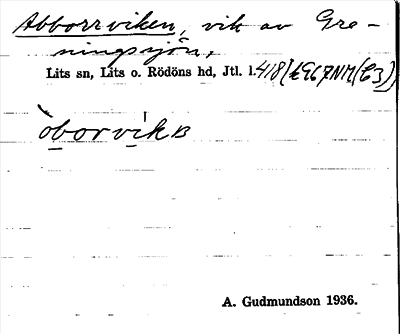 Abborrviken, vik av Gre-
ningssjön,
Lits sn, Lits o. Rödöns hd, Jtl. l.
òborvikB
A. Gudmundson 1936.